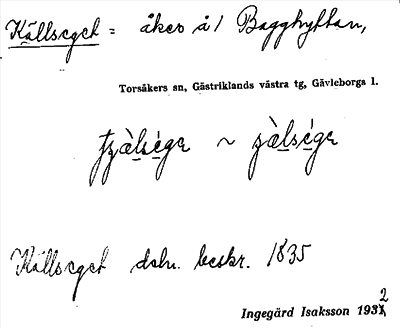 Källseget = åker å/ Bagghyttan,
Torsåkers sn, Gästriklands västra tg, Gävleborgs l.
Källseget dsbr. beskr. 1835
Ingegärd Isaksson 1932